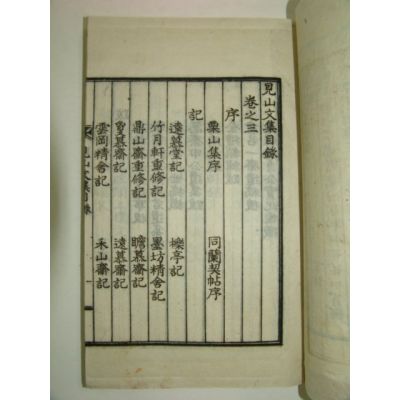 見山文集目錄
卷之三
序
栗山集序 同蘭契帖序
記
遠慕堂記 櫟亭記
竹月軒重修記 墨坊精舍記
鼎山齋重修記 瞻慕齋記
聖慕齋記 遠慕齋記
雲岡精舍記 禾山齋記
見山文集目錄